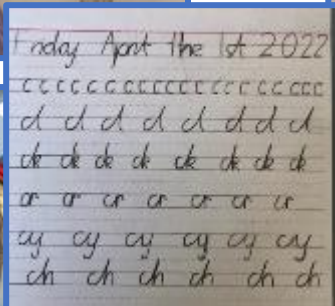 Friday April the 1st 2022
c c c c c c c c c c c c c c c c c c c c
cl cl cl cl cl cl cl cl
ck ck ck ck ck ck ck ck
cr cr cr cr cr cr cr
cy cy cy cy cy cy
ch ch ch ch ch ch